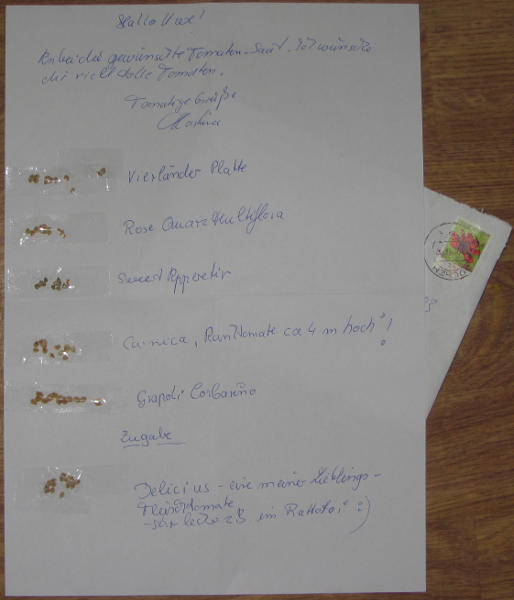 Hallo
Anbei das gewünschte Tomaten-Saat. Ich wünsche
dir viele tolle Tomaten.
Tomatige Grüße
Martina
Vierländer Platte
Rose Quarz Multiflora
Sweet Apperetiv
Carnica, Rankltomate ca 4 m hoch!
Grapoli Corbarino
Zugabe
Delicius - eine meiner Lieblings-
Fleischtomate
- sehr lecker zB im Rattatoi :)